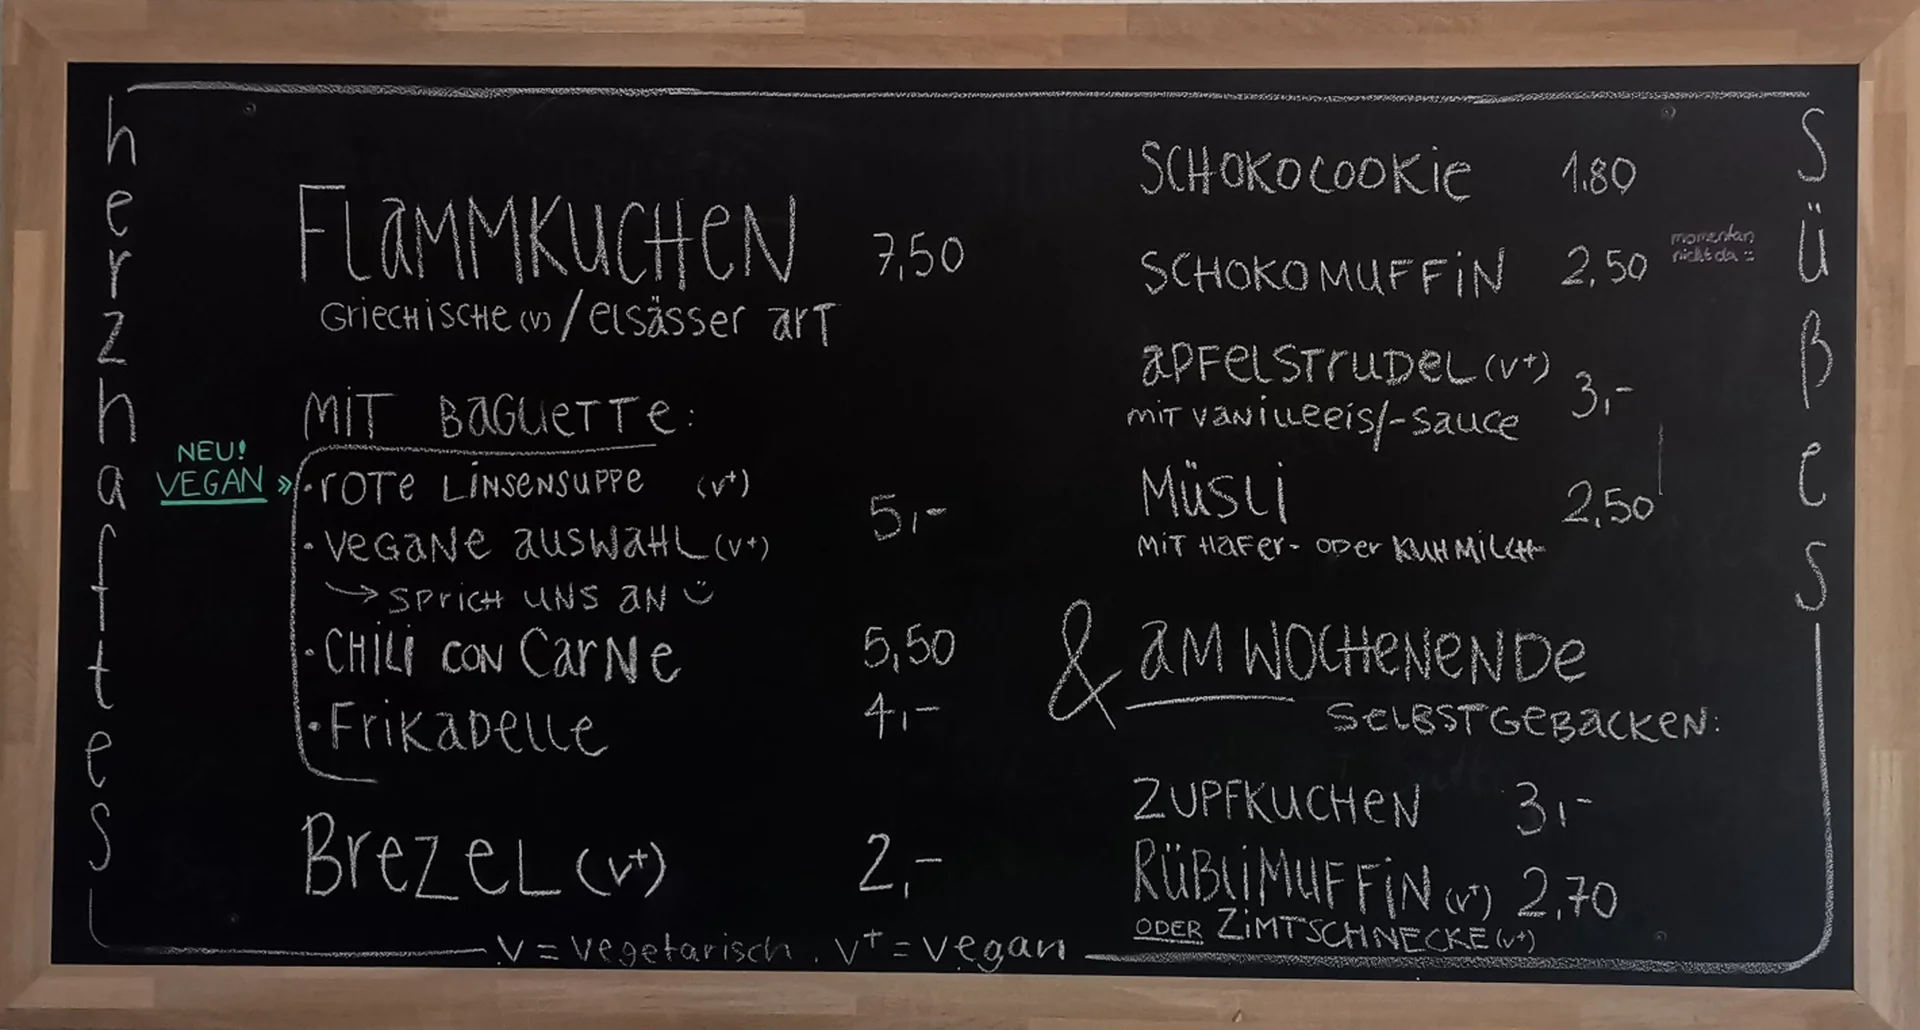 herzhaftes
FLAMMKUCHEN 7,50
GRIECHISCHE (V) / ELSÄSSER ART
MIT BAGUETTE:
NEU!
VEGAN »
· ROTE LINSENSUPPE (V+)
· VEGANE AUSWAHL (V+) 5,-
→ SPRICH UNS AN ☺
· CHILI CON CARNE 5,50
· FRIKADELLE 4,-
BREZEL (V+) 2,-
V = vegetarisch . V+ = vegan
Süßes
SCHOKOCOOKIE 1.80
SCHOKOMUFFIN 2,50
momentan
nicht da :
APFELSTRUDEL (V+) 3,-
MIT VANILLEEIS/-SAUCE
MÜSLI 2,50
MIT HAFER- ODER KUHMILCH
& AM WOCHENENDE
SELBSTGEBACKEN:
ZUPFKUCHEN 3,-
RÜBLIMUFFIN (V+) 2,70
ODER ZIMTSCHNECKE (V+)